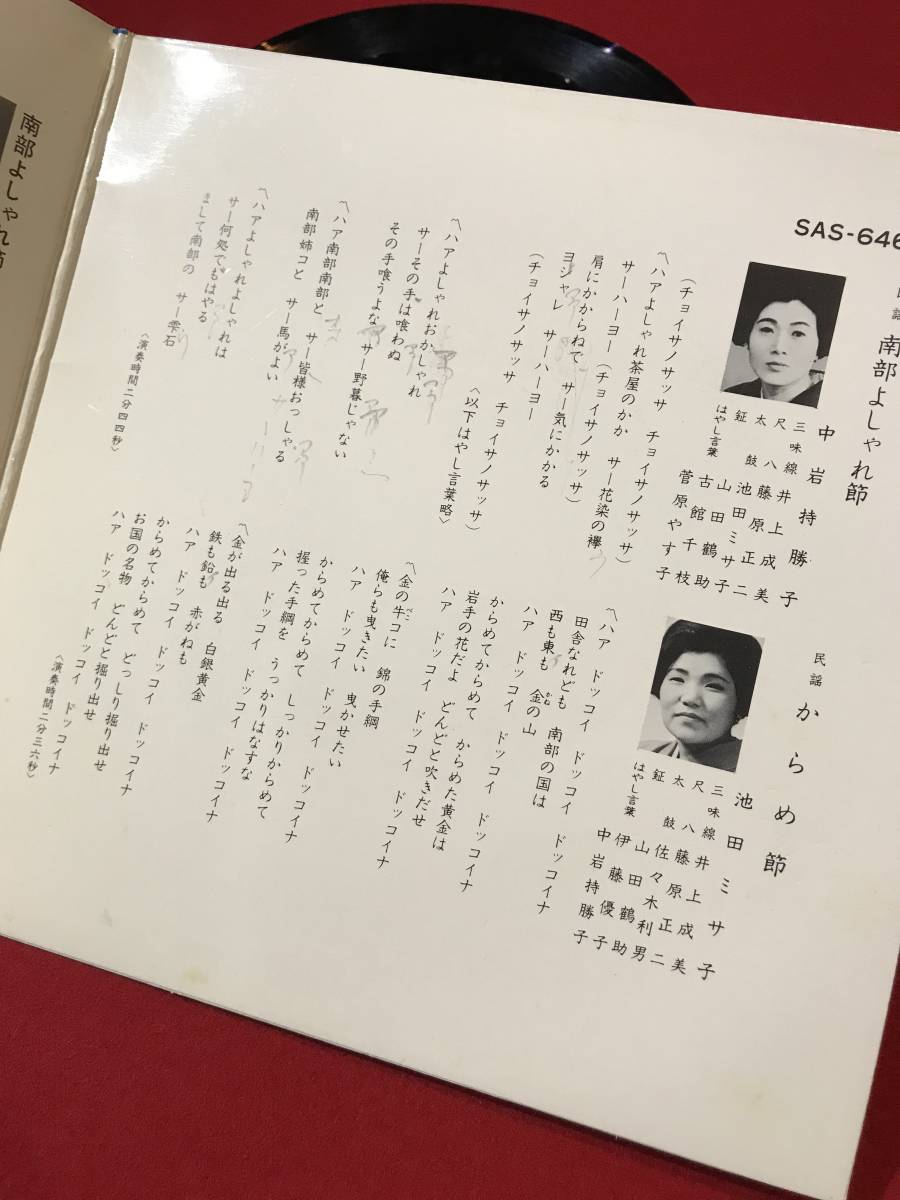 SAS-646
民謡 南部よしゃれ節
中岩持勝子
三味線 井上成美
尺八 藤原正二
太鼓 池田ミサ子
鉦 山田鶴助
はやし言葉 古館千枝
菅原やす子
(チョイサノサッサ チョイサノサッサ)
〽ハアよしゃれ茶屋のかか サー花染の襷
サーハーヨー (チョイサノサッサ)
肩にかからねで サー気にかかる
ヨシャレ サーハーヨー
(チョイサノサッサ チョイサノサッサ)
〈以下はやし言葉略〉
〽ハアよしゃれおかしゃれ
サーその手は喰わぬ
その手喰うよな サー野暮じゃない
〽ハア南部南部と サー皆様おっしゃる
南部姉コと サー馬がよい
〽ハアよしゃれよしゃれは
サー何処でもはやる
まして南部の サー雫石
〈演奏時間二分四四秒〉
民謡 からめ節
池田ミサ子
三味線 井上成美
尺八 藤原正二
太鼓 佐々木利男
鉦 山田鶴助
はやし言葉 伊藤優子
中岩持勝子
〽ハア ドッコイ ドッコイ ドッコイナ
田舎なれども 南部の国は
西も東も 金の山
かね
ハア ドッコイ ドッコイ ドッコイナ
からめてからめて からめた黄金は
岩手の花だよ どんどと吹きだせ
ハア ドッコイ ドッコイ ドッコイナ
〽金の牛コに 錦の手綱
べこ
俺らも曳きたい 曳かせたい
ハア ドッコイ ドッコイ ドッコイナ
からめてからめて しっかりからめて
握った手綱を うっかりはなすな
ハア ドッコイ ドッコイ ドッコイナ
〽金が出る出る 白銀黄金
鉄も鉛も 赤がねも
ハア ドッコイ ドッコイ ドッコイナ
からめてからめて どっしり掘り出せ
お国の名物 どんどと掘り出せ
ハア ドッコイ ドッコイ ドッコイナ
〈演奏時間二分三六秒〉
南部よしゃれ節